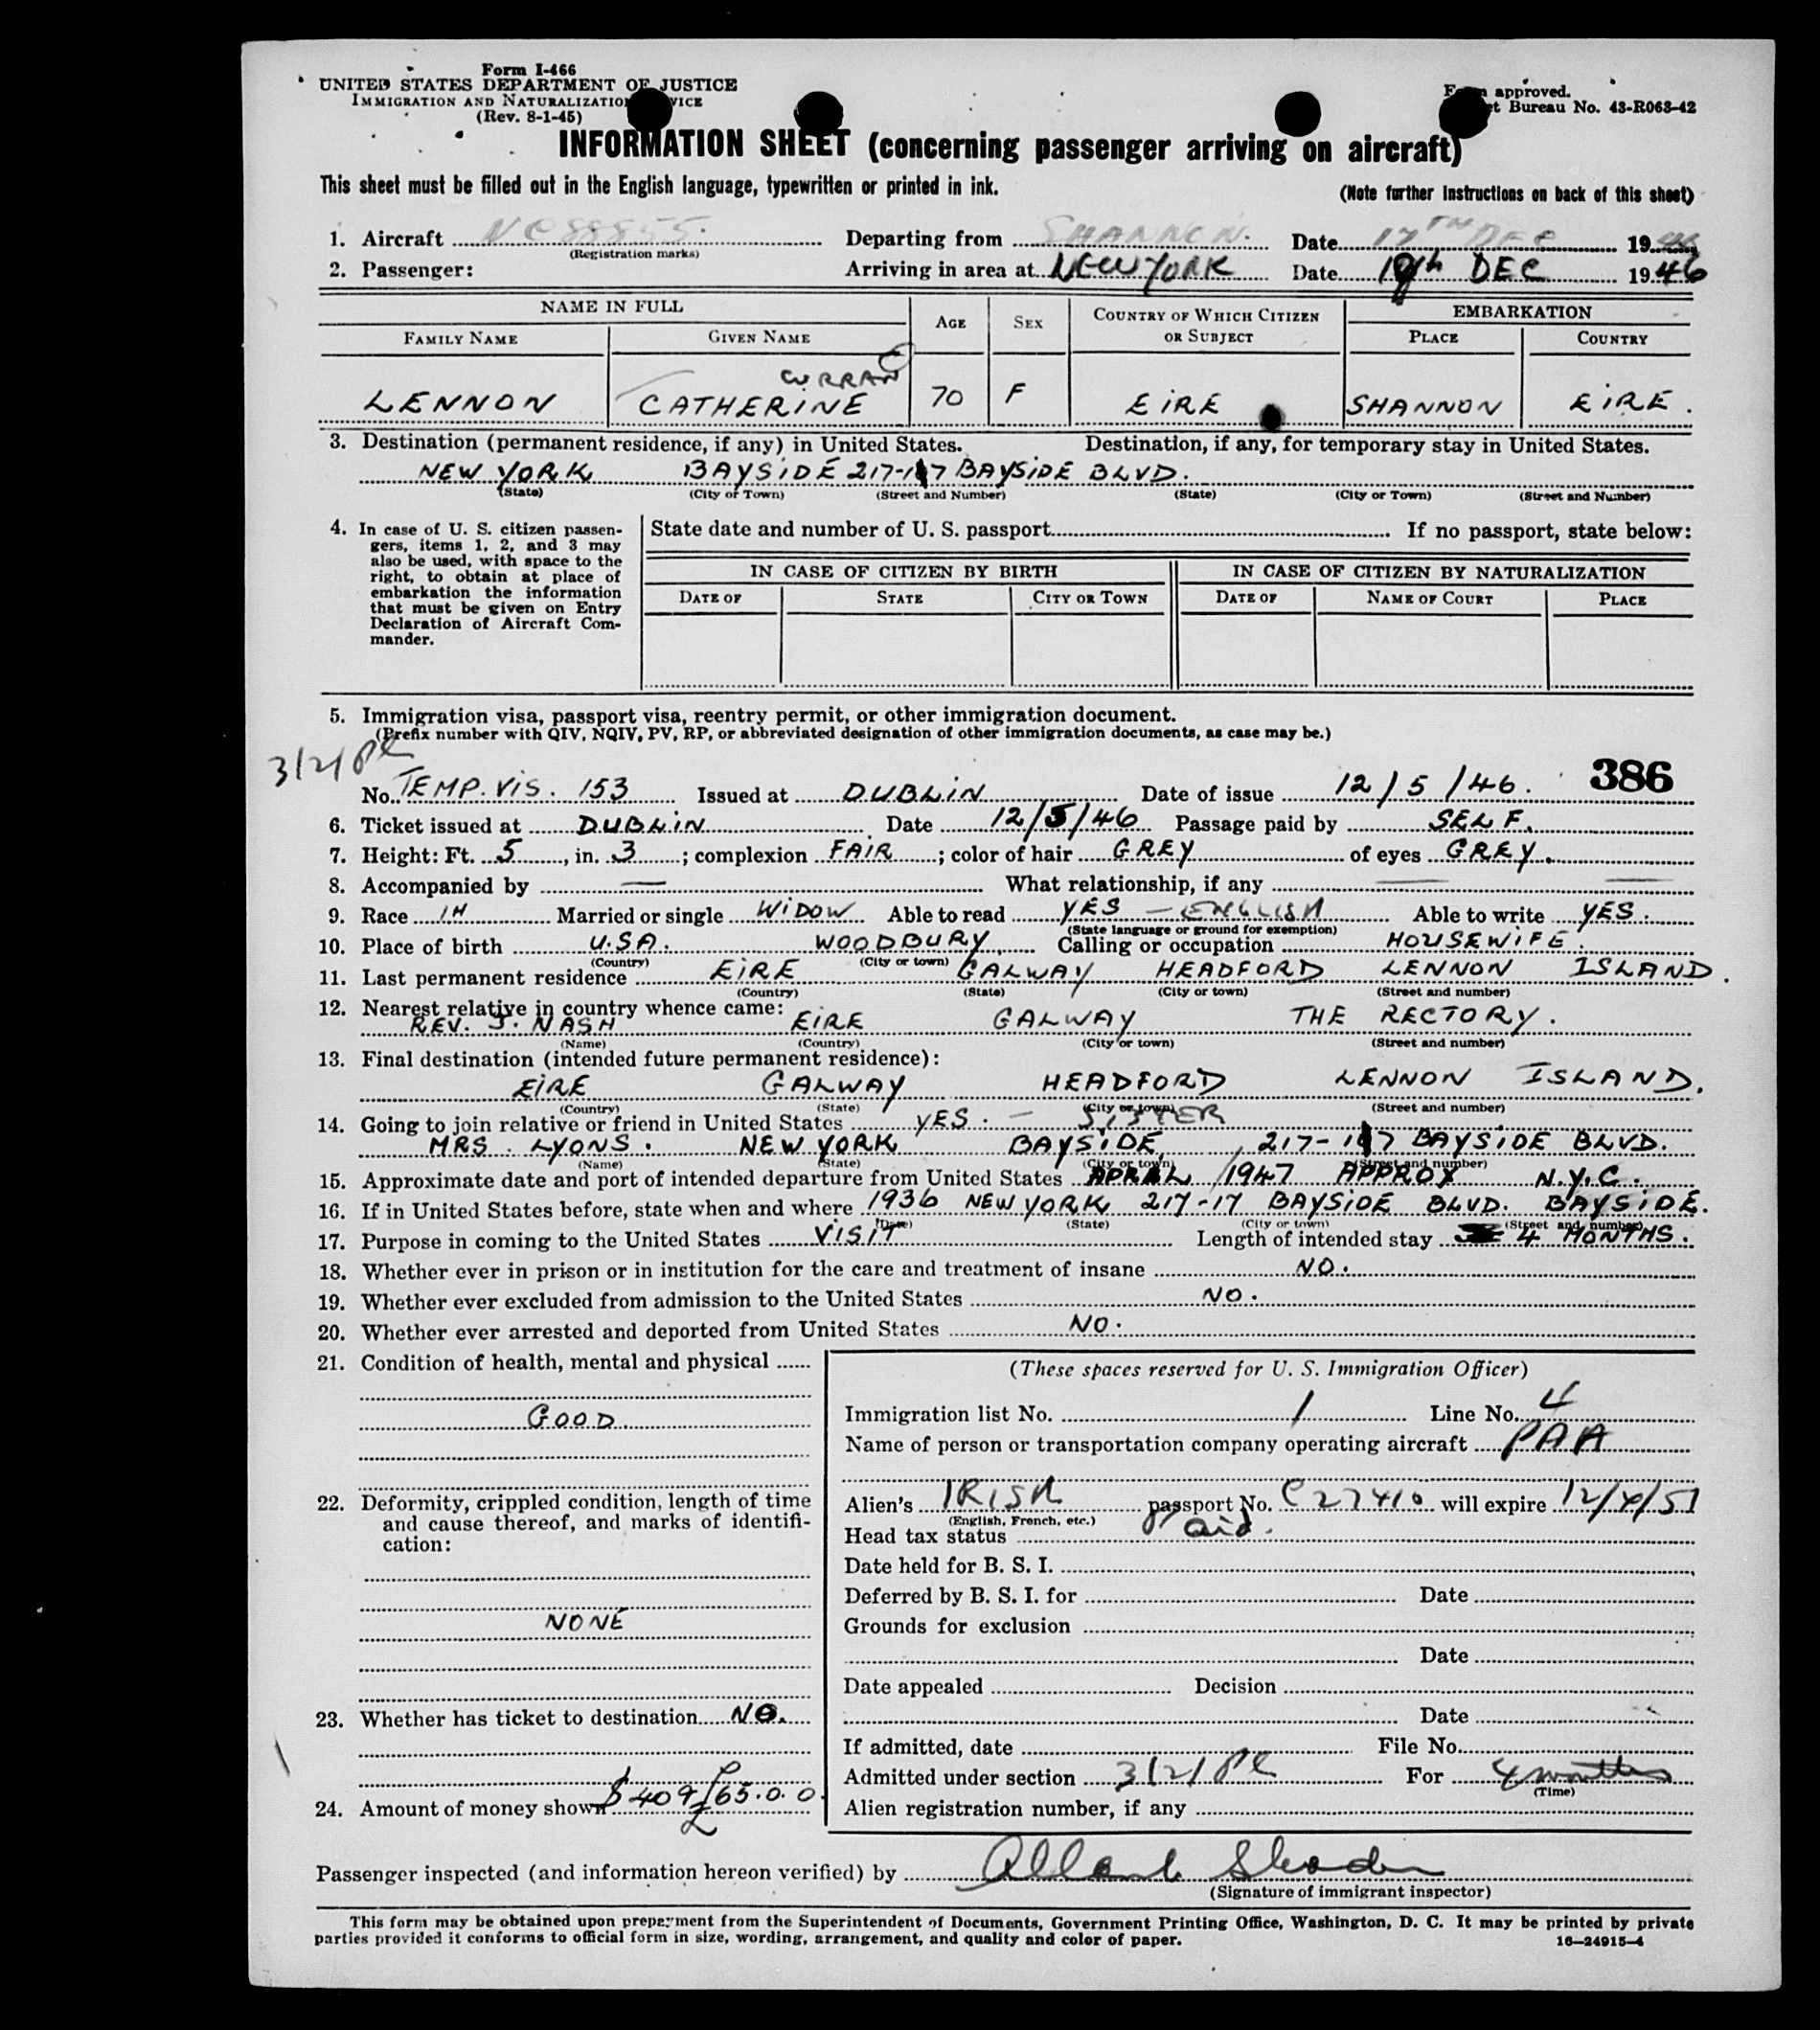 Form I-466
UNITED STATES DEPARTMENT OF JUSTICE
IMMIGRATION AND NATURALIZATION SERVICE
(Rev. 8-1-45)
Form approved.
Bureau No. 43-R063-42
INFORMATION SHEET (concerning passenger arriving on aircraft)
This sheet must be filled out in the English language, typewritten or printed in ink.
(Note further instructions on back of this sheet)
1. Aircraft NC88855. Departing from SHANNON. Date 17TH DEC 1946
(Registration marks)
2. Passenger: Arriving in area at NEW YORK Date DEC 1946
NAME IN FULL AGE SEX COUNTRY OF WHICH CITIZEN OR SUBJECT EMBARKATION
FAMILY NAME GIVEN NAME PLACE COUNTRY
CURRAN
LENNON CATHERINE 70 F EIRE SHANNON EIRE.
3. Destination (permanent residence, if any) in United States. Destination, if any, for temporary stay in United States.
NEW YORK BAYSIDE 217-17 BAYSIDE BLVD.
(State) (City or Town) (Street and Number) (State) (City or Town) (Street and Number)
4. In case of U. S. citizen passen-
gers, items 1, 2, and 3 may
also be used, with space to the
right, to obtain at place of
embarkation the information
that must be given on Entry
Declaration of Aircraft Com-
mander.
State date and number of U. S. passport If no passport, state below:
IN CASE OF CITIZEN BY BIRTH IN CASE OF CITIZEN BY NATURALIZATION
DATE OF STATE CITY OR TOWN DATE OF NAME OF COURT PLACE
5. Immigration visa, passport visa, reentry permit, or other immigration document.
(Prefix number with QIV, NQIV, PV, RP, or abbreviated designation of other immigration documents, as case may be.)
3/2/
386
No. TEMP. VIS. 153 Issued at DUBLIN Date of issue 12/5/46.
6. Ticket issued at DUBLIN Date 12/5/46 Passage paid by SELF.
7. Height: Ft. 5, in. 3; complexion FAIR; color of hair GREY of eyes GREY.
8. Accompanied by — What relationship, if any —
9. Race IH Married or single WIDOW Able to read YES — ENGLISH Able to write YES.
(State language or ground for exemption)
10. Place of birth U.S.A. WOODBURY Calling or occupation HOUSEWIFE.
(Country) (City or town)
11. Last permanent residence EIRE GALWAY HEADFORD LENNON ISLAND.
(Country) (State) (City or town) (Street and number)
12. Nearest relative in country whence came:
REV. J. NASH EIRE GALWAY THE RECTORY.
(Name) (Country) (City or town) (Street and number)
13. Final destination (intended future permanent residence):
EIRE GALWAY HEADFORD LENNON ISLAND.
(Country) (State) (City or town) (Street and number)
14. Going to join relative or friend in United States YES. — SISTER
MRS. LYONS. NEW YORK BAYSIDE, 217-17 BAYSIDE BLVD.
(Name) (State) (City or town) (Street and number)
15. Approximate date and port of intended departure from United States APRIL 1947 APPROX N.Y.C.
16. If in United States before, state when and where 1936 NEW YORK 217-17 BAYSIDE BLVD. BAYSIDE.
(Date) (State) (City or town) (Street and number)
17. Purpose in coming to the United States VISIT Length of intended stay 4 MONTHS.
18. Whether ever in prison or in institution for the care and treatment of insane NO.
19. Whether ever excluded from admission to the United States NO.
20. Whether ever arrested and deported from United States NO.
21. Condition of health, mental and physical
GOOD
22. Deformity, crippled condition, length of time
and cause thereof, and marks of identifi-
cation:
NONE
23. Whether has ticket to destination NO.
24. Amount of money shown $409 £65.0.0.
(These spaces reserved for U. S. Immigration Officer)
Immigration list No. 1 Line No. 4
Name of person or transportation company operating aircraft PAA
Alien's IRISH passport No. C27410 will expire 12/4/51
(English, French, etc.)
Head tax status Paid.
Date held for B. S. I.
Deferred by B. S. I. for Date
Grounds for exclusion
Date
Date appealed Decision
Date
If admitted, date File No.
Admitted under section 3/2/ For 4 months
(Time)
Alien registration number, if any
Passenger inspected (and information hereon verified) by
(Signature of immigrant inspector)
This form may be obtained upon prepayment from the Superintendent of Documents, Government Printing Office, Washington, D. C. It may be printed by private
parties provided it conforms to official form in size, wording, arrangement, and quality and color of paper.
16—24915-4